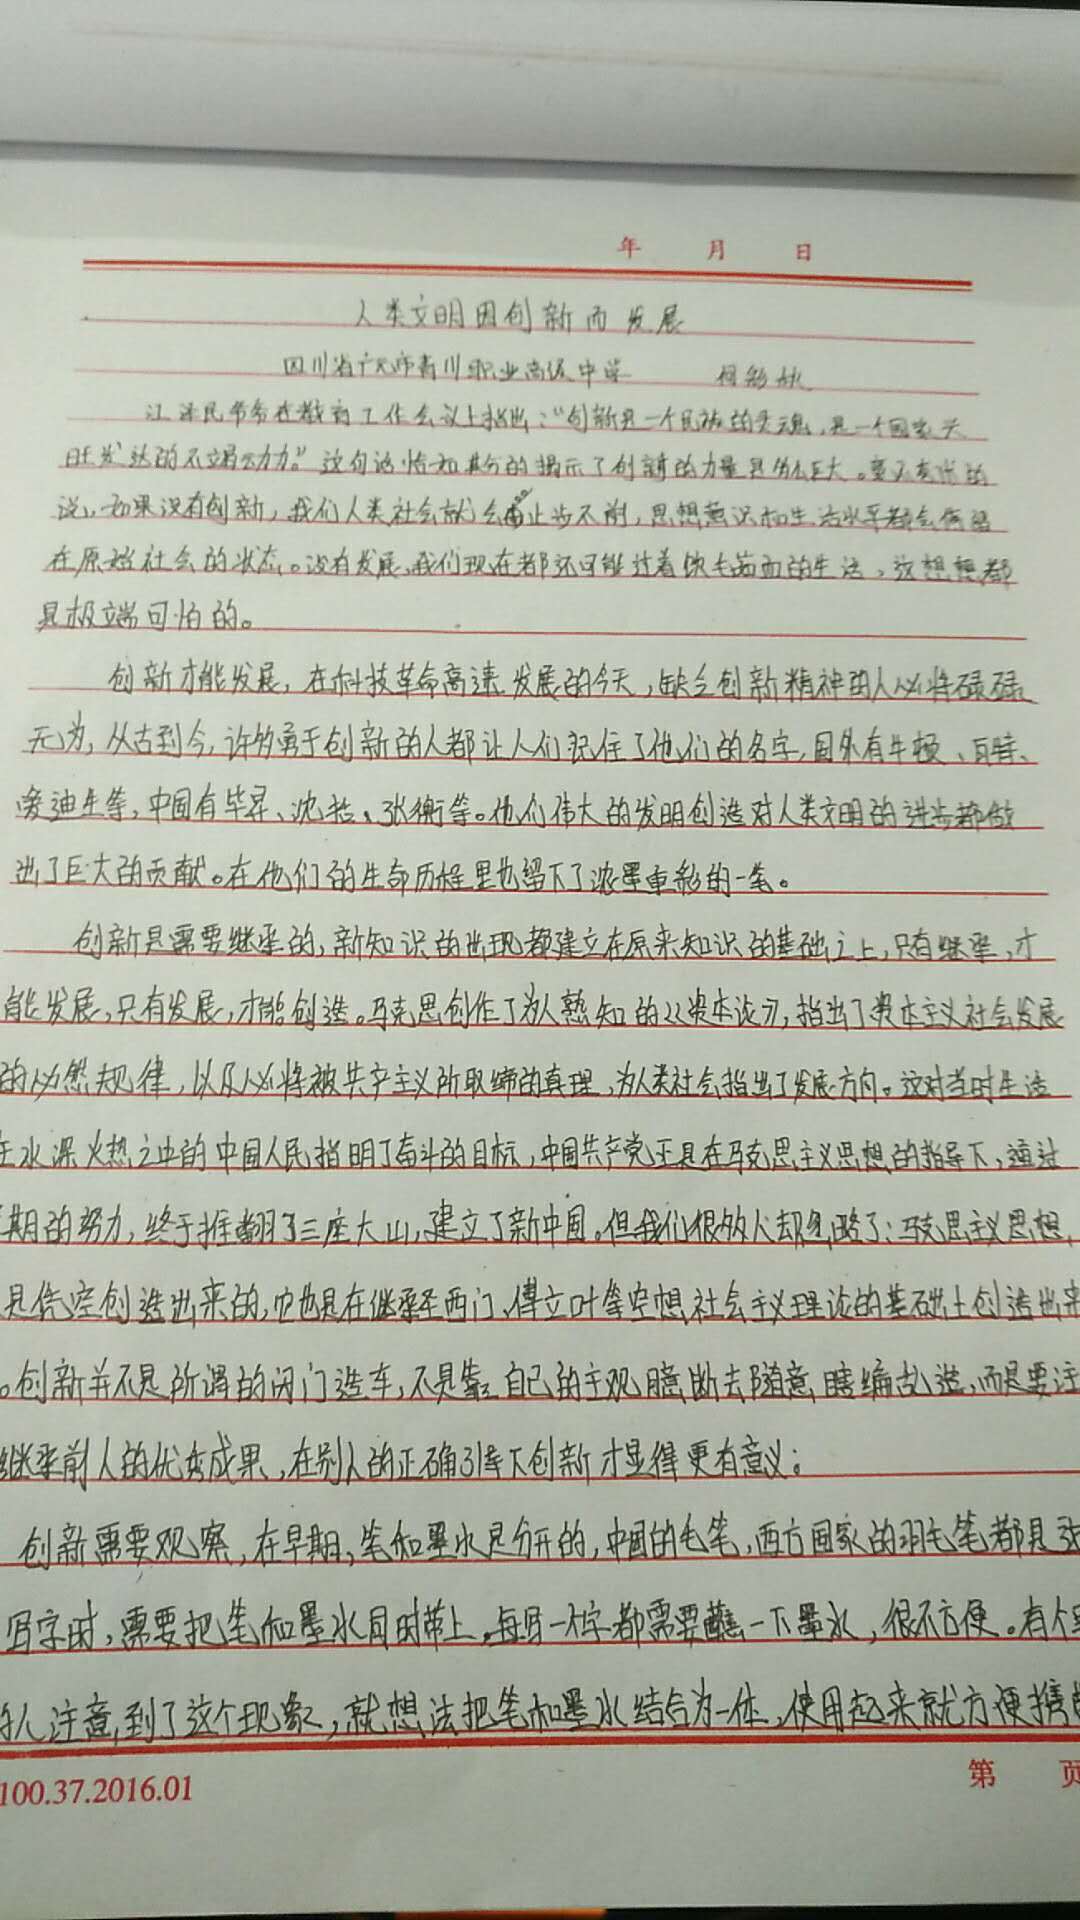 年 月 日
人类文明因创新而发展
四川省广元市青川职业高级中学
江泽民常常在教育工作会议上指出:“创新是一个民族的灵魂,是一个国家兴
旺发达的不竭动力。”这句话恰如其分的揭示了创新的力量是多么巨大。毫不夸张的
说,如果没有创新,我们人类社会就会停止步不前,思想意识和生活水平都会停留
在原始社会的状态。没有发展,我们现在都还可能过着饮毛茹血的生活,这想想都
是极端可怕的。
创新才能发展,在科技革命高速发展的今天,缺乏创新精神的人必将碌碌
无为,从古到今,许多勇于创新的人都让人们记住了他们的名字,国外有牛顿、瓦特、
爱迪生等,中国有毕昇、沈括、张衡等。他们伟大的发明创造对人类文明的进步都做
出了巨大的贡献。在他们的生命历程里也留下了浓墨重彩的一笔。
创新是需要继承的,新知识的出现都建立在原来知识的基础之上,只有继承,才
能发展,只有发展,才能创造。马克思创作了为人熟知的《资本论》,指出了资本主义社会发展
的必然规律,以及必将被共产主义所取缔的真理,为人类社会指出了发展方向。这对当时生活
在水深火热之中的中国人民指明了奋斗的目标,中国共产党正是在马克思主义思想的指导下,通过
期的努力,终于推翻了三座大山,建立了新中国。但我们很多人却忽略了:马克思主义思想,
是凭空创造出来的,它也是在继承圣西门、傅立叶等空想社会主义理论的基础上创造出来
。创新并不是所谓的闭门造车,不是靠自己的主观臆断去随意瞎编乱造,而是要注
继承前人的优秀成果,在别人的正确引导下创新才显得更有意义;
创新需要观察,在早期,笔和墨水是分开的,中国的毛笔,西方国家的羽毛笔都是
写字时,需要把笔和墨水同时带上。每写一个字都需要蘸一下墨水,很不方便。有个
的人注意到了这个现象,就想法把笔和墨水结合为一体,使用起来就方便携
100.37.2016.01
第 页